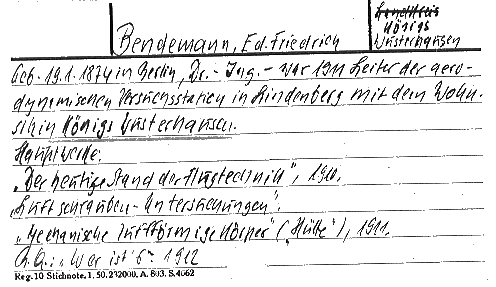 Landkreis
Königs
Wusterhausen
Bendemann, Ed. Friedrich
Geb. 19.1.1874 in Berlin, Dr.-Ing. - war 1911 Leiter der aero-
dynamischen Versuchsstation in Lindenberg mit dem Wohn-
sitz in Königs Wusterhausen.
Hauptwerke:
"Der heutige Stand der Flugtechnik", 1910.
"Luftschrauben-Untersuchungen".
"Mechanische luftförmige Körper" ("Hütte"), 1911.
"Wer ist's" 1912
Reg. 10 Stichnote, 1. 50. 232000. A. 803. S. 4062